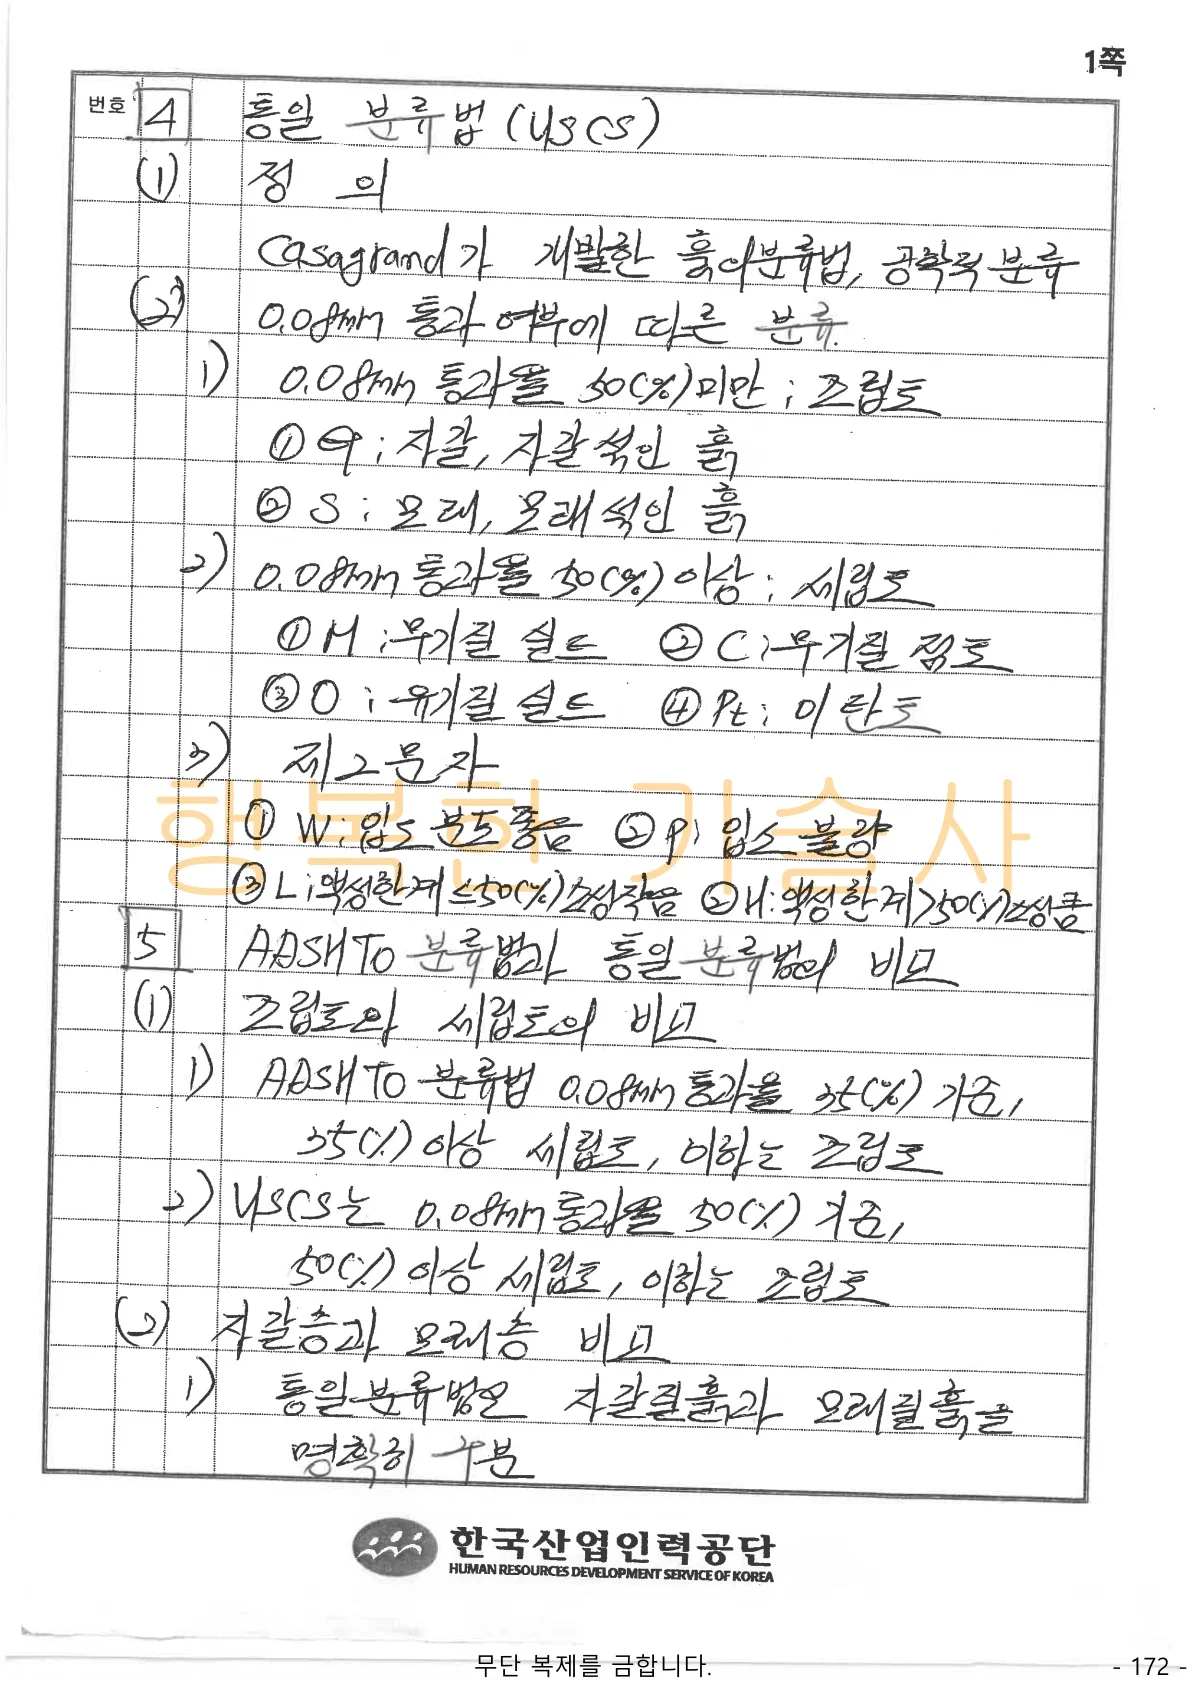 1쪽
번호 4 통일 분류법 (USCS)
(1) 정 의
Casagrand가 개발한 흙의분류법, 공학적 분류
(2) 0.08mm 통과 여부에 따른 분류.
1) 0.08mm 통과율 50(%)미만 ; 조립토
① G ; 자갈, 자갈섞인 흙
② S ; 모래, 모래섞인 흙
2) 0.08mm 통과율 50(%) 이상 ; 세립토
① M ; 무기질 실트 ② C ; 무기질 점토
③ O ; 유기질 실트 ④ Pt ; 이탄토
3) 제2문자
① W ; 입도 분포좋음 ② P ; 입도 불량
③ L ; 액성한계 ≤50(%)소성작음 ② H : 액성한계 >50(%)소성큼
행복한 기술사
5 AASHTO 분류법과 통일 분류법의 비교
(1) 조립토와 세립토의 비교
1) AASHTO 분류법 0.08mm 통과율 35(%) 기준,
35(%) 이상 세립토, 이하는 조립토
2) USCS는 0.08mm 통과율 50(%) 기준,
50(%) 이상 세립토, 이하는 조립토
(2) 자갈층과 모래층 비교
1) 통일분류법은 자갈질흙과 모래질흙을
명확히 구분
한국산업인력공단
HUMAN RESOURCES DEVELOPMENT SERVICE OF KOREA
무단 복제를 금합니다.
- 172 -